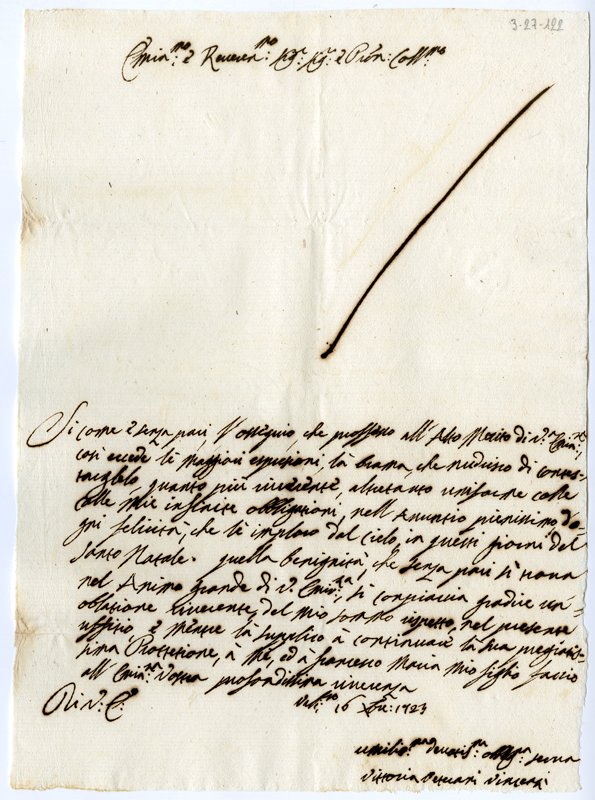 3-27-122
Emin:mo e Reveren:mo Sig:r Sig:r e Pron: Coll:mo
Si come è senza pari l'ossequio, che professo all'Alto Merito di V:ra Emin:za,
così eccede le maggiori espressioni, la brama, che nudrisco di contes-
targlielo quanto più riverente, altretanto uniforme colle
colle mie infinite obbligationi, nell'Anuntio pienissimo d'o-
gni felicità, che le imploro dal Cielo, in questi giorni del
Santo Natale. quella benignità, che senza pari si trova
nel Animo grande di V: Emin:za, si compiaccia gradire un'-
oblatione riverente del mio sommo rispetto, nel presente
uffitio e Mentre la supplico à continuare la sua pregiatis-
sima Protettione, à Me, ed à francesco Maria Mio figlio faccio
all'Emin:za Vostra profondissima riverenza
Di V: E:
16 Xbre: 1723
umilis:ma devotis:ma obblig:ma serva
Vittoria Vincenzi